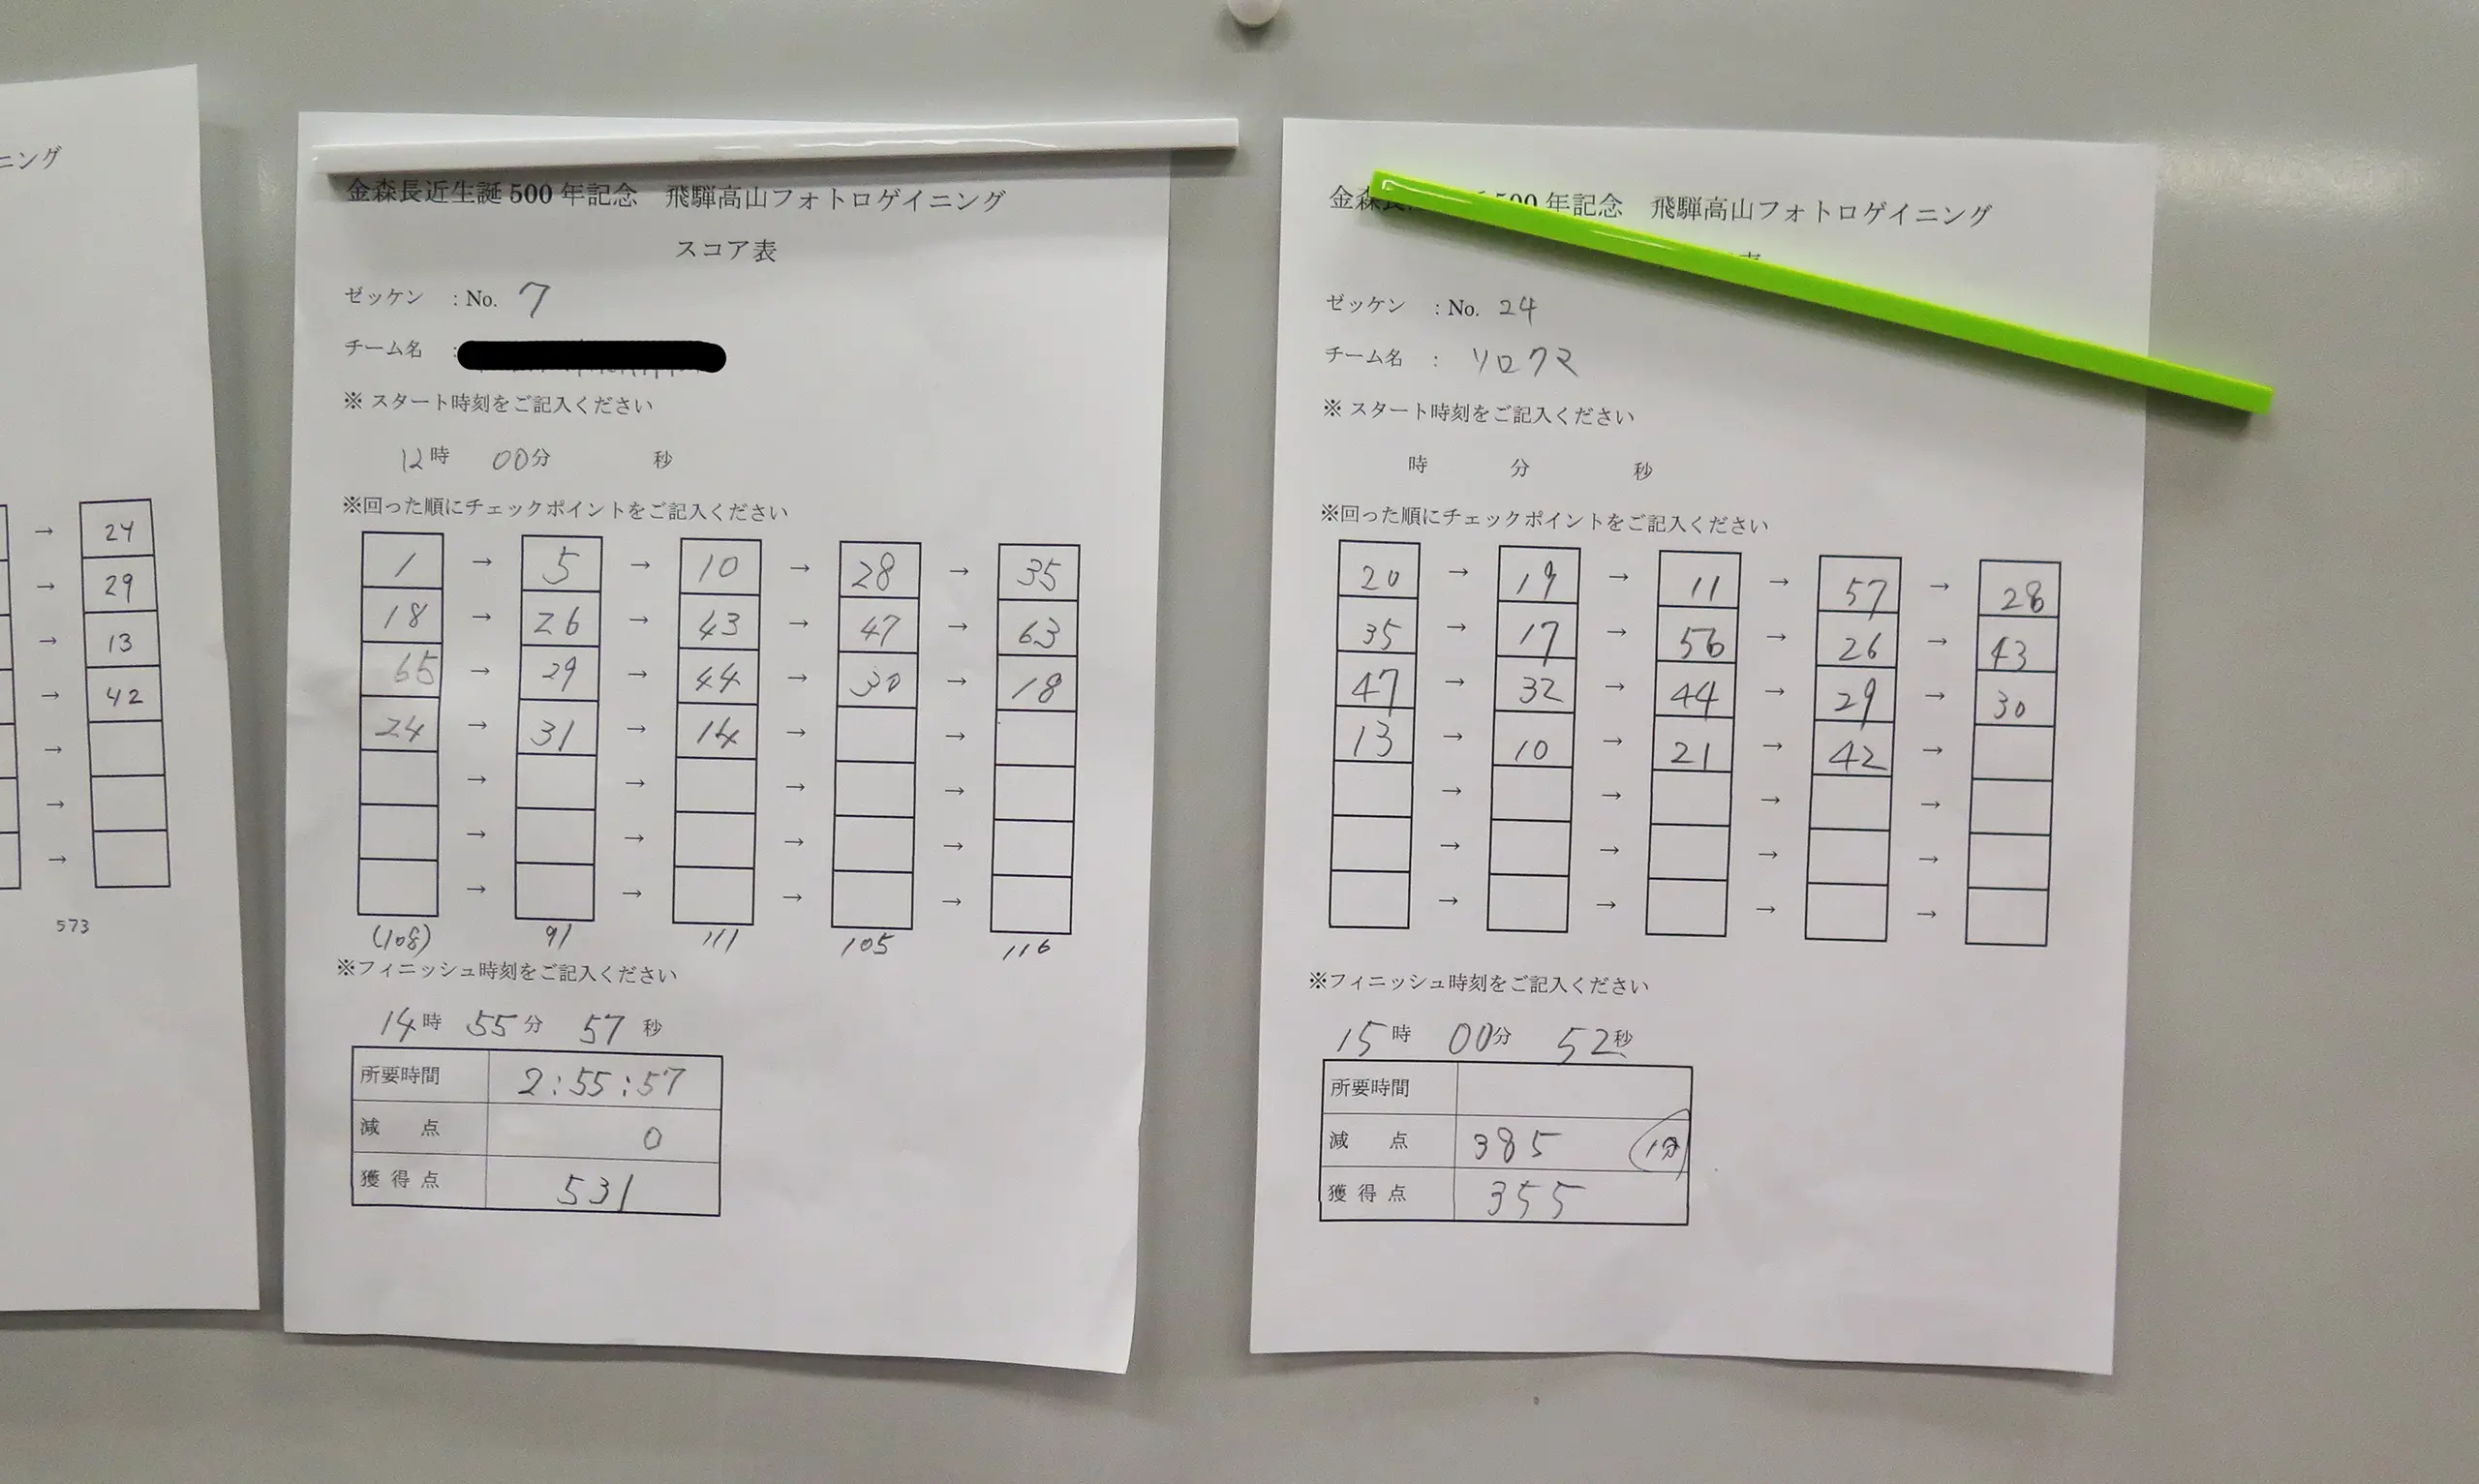 ニング
→ 24
→ 29
→ 13
→ 42
→
→
→
573
金森長近生誕500年記念 飛騨高山フォトロゲイニング
スコア表
ゼッケン : No. 7
チーム名 :
※ スタート時刻をご記入ください
12時 00分 秒
※回った順にチェックポイントをご記入ください
1 → 5 → 10 → 28 → 35
18 → 26 → 43 → 47 → 63
65 → 29 → 44 → 30 → 18
24 → 31 → 14 → →
→ → → →
→ → → →
→ → → →
(108) 91 111 105 116
※フィニッシュ時刻をご記入ください
14時 55分 57秒
所要時間 2:55:57
減 点 0
獲 得 点 531
金森 500年記念 飛騨高山フォトロゲイニング
ゼッケン : No. 24
チーム名 : ソロクマ
※ スタート時刻をご記入ください
時 分 秒
※回った順にチェックポイントをご記入ください
20 → 19 → 11 → 57 → 28
35 → 17 → 56 → 26 → 43
47 → 32 → 44 → 29 → 30
13 → 10 → 21 → 42 →
→ → → →
→ → → →
→ → → →
※フィニッシュ時刻をご記入ください
15時 00分 52秒
所要時間
減 点 385 1分
獲 得 点 355